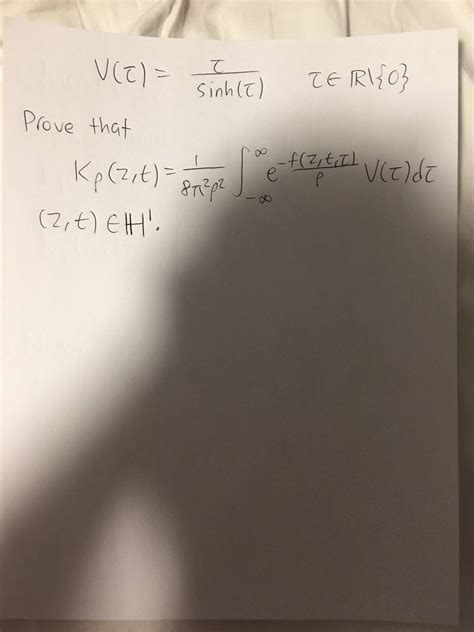 V(τ) = τ/sinh(τ) τ ∈ ℝ\{0}
Prove that
Kρ(z,t) = 1/8π²ρ² ∫_{-∞}^{∞} e^{-f(z,t,τ)/ρ} V(τ)dτ
(z,t) ∈ ℍ¹.